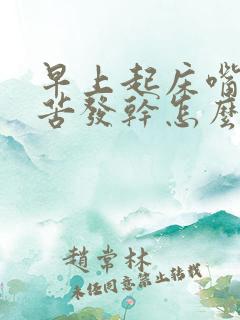 早上起床嘴
苦發幹怎麼
趙常林
未经同意禁止转载